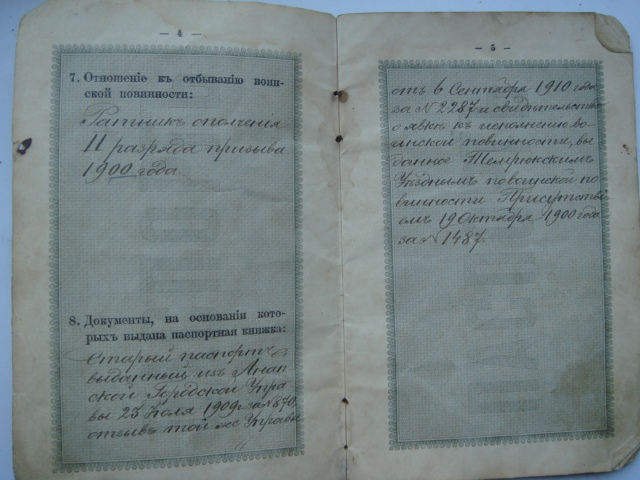 — 4 —
7. Отношеніе къ отбыванію воин-
ской повинности:
Ратникъ ополченія
II разряда призыва
1900 года.
8. Документы, на основаніи кото-
рыхъ выдана паспортная книжка:
Старый паспортъ
выданный изъ Анап-
ской Городской Упра
вы 23 Іюля 1909 г за № 870,
отзывъ той же Управы
— 5 —
отъ 6 Сентября 1910 года
за № 2287 и свидѣтельство
о явкѣ къ исполненію во-
инской повинности, вы
данное Темрюкскимъ
Уѣзднымъ по воинской по
винности Присутстві
емъ 19 Октября 1900 года
за № 1487.